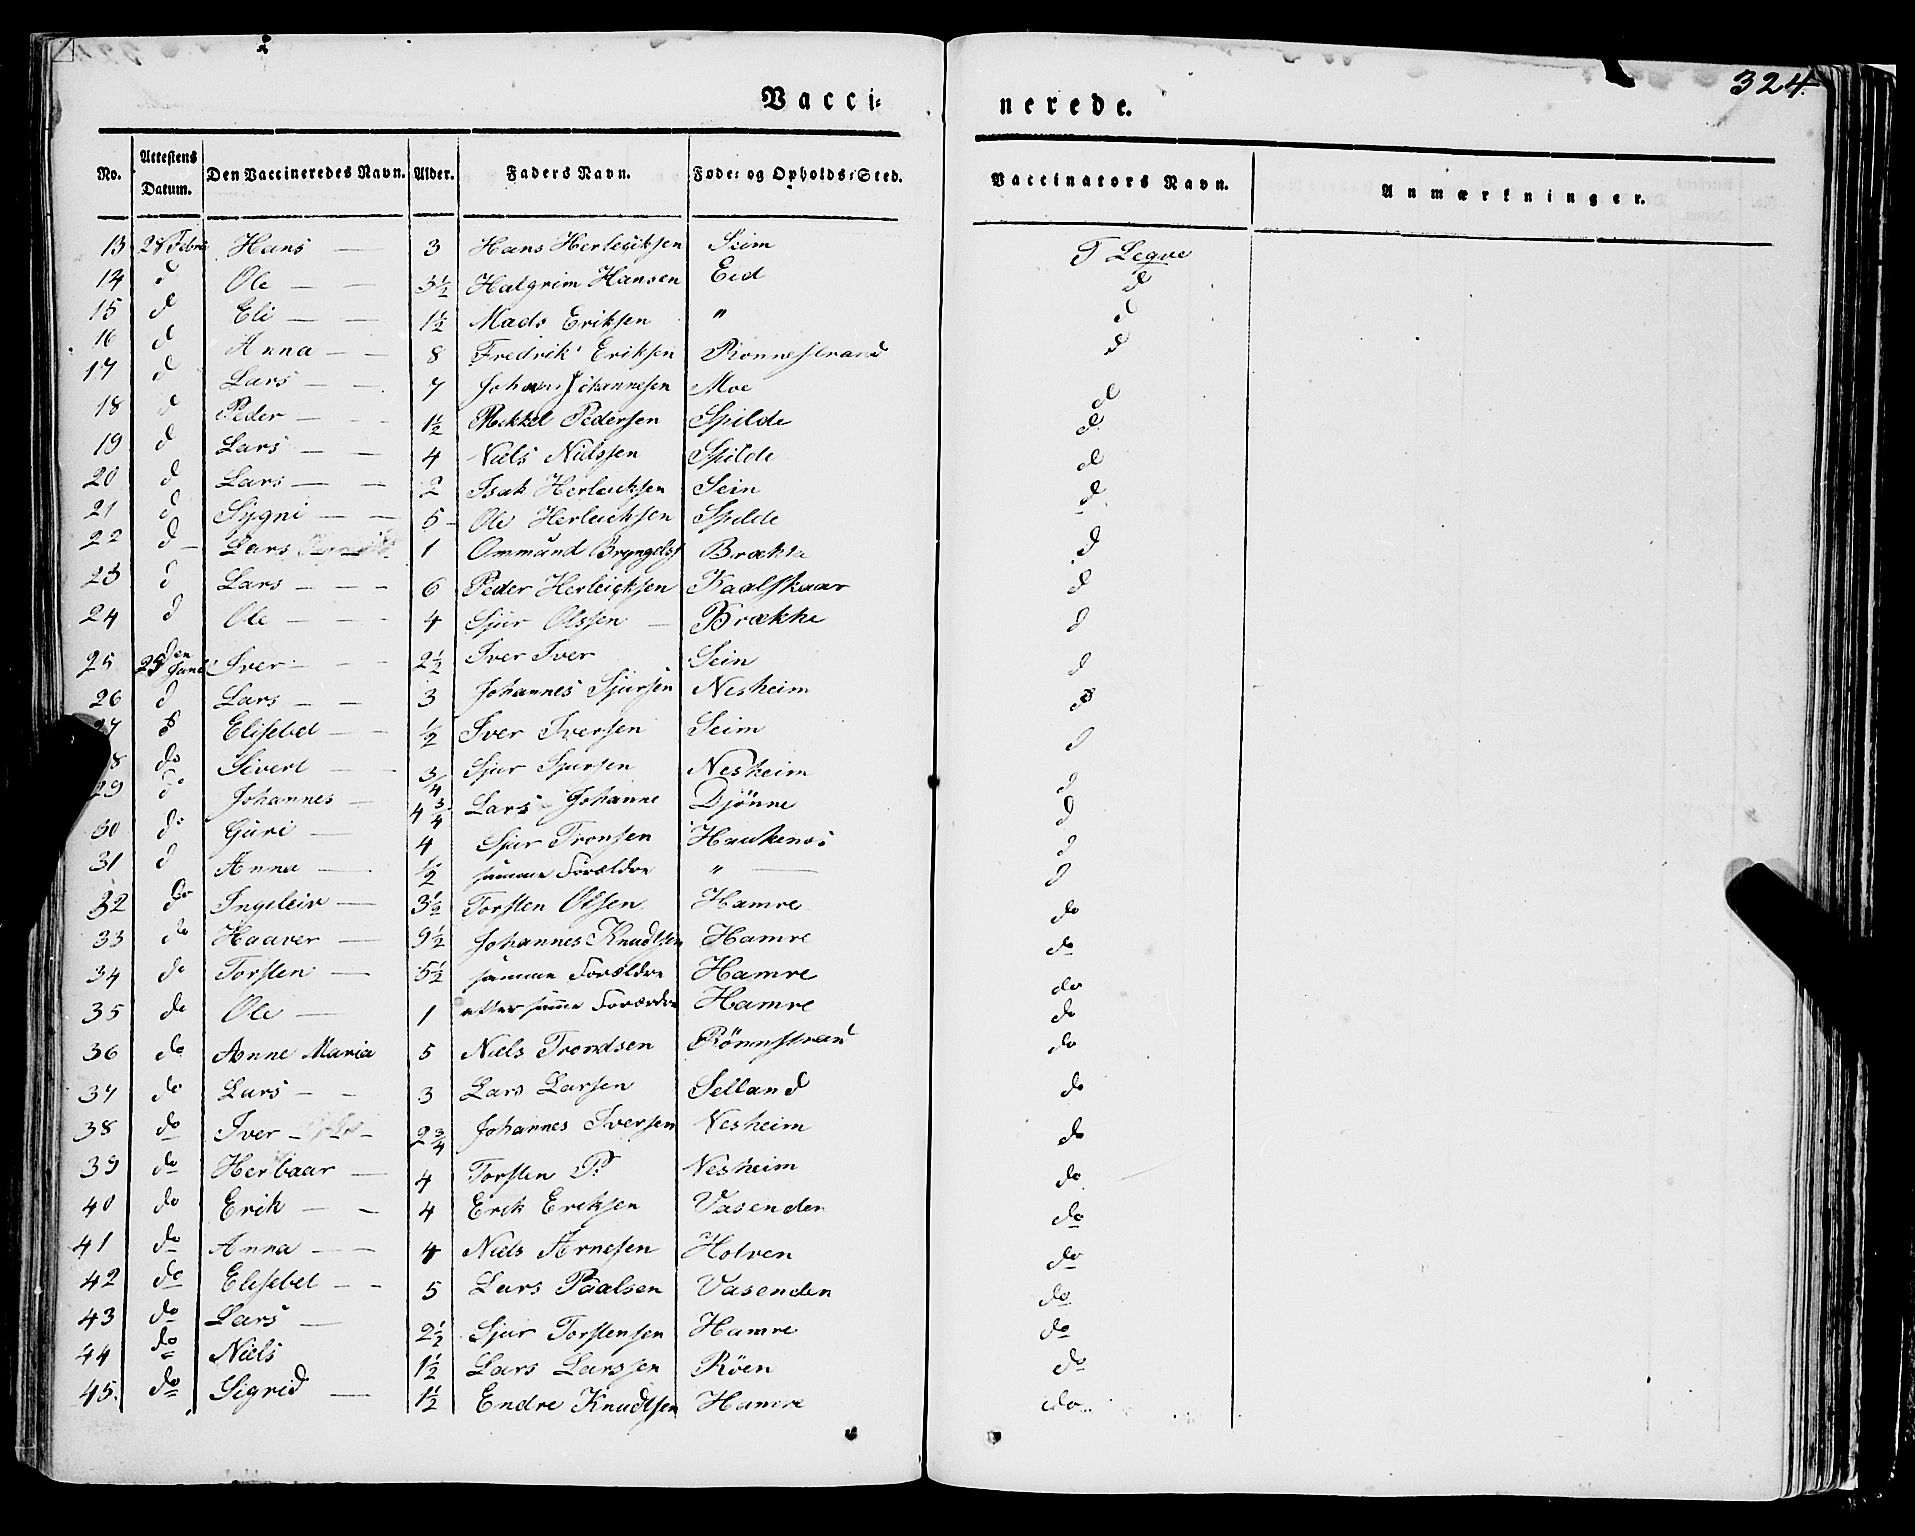 324.
Vacci= nerede.
No. | Attestens Datum. | Den Vaccineredes Navn. | Alder. | Faders Navn. | Føde= og Opholds=Sted. | Vaccinators Navn. | Anmærkninger.
13 | 28 Febru | Hans — | 3 | Hans Herleiksen | Seim | T Legve
14 | d | Ole — — | 3½ | Halgrim Hansen | Eid | d
15 | d | Eli — — | 1½ | Mads Eriksen | " | d
16 | d | Anna — — | 8 | Fredrik Eriksen | Ronnestrand | d
17 | d | Lars — — | 7 | Johans Johannesen | Moe | d
18 | d | Peder — — | 1½ | Mekkel Pedersen | Spilde | d
19 | d | Lars — — | 4 | Niels Nielssen | Spilde | d
20 | d | Lars — — | 2 | Isak Herleiksen | Sein | d
21 | d | Sygni — — | 5 — | Ole Herleiksen | Spilde | d
22 | d — | Lars | 1 | Ommund Bryngels | Brække | d
23 | d | Lars — — — | 6 | Peder Herleiksen | Faalskaar | d
24 | d | Ole — — — | 4 | Sjur Olssen — | Brække | d
25 | 25 den Juni | Iver — — — | 2½ | Iver Iver | Sein | d
26 | d | Lars — — | 3 | Johannes Sjursen | Nesheim | d
27 | d | Elisebet — — | ½ | Iver Iversen | Seim | d
28 | do | Sivert — — | 3/4 | Sjur Sjursen | Nesheim | d
29 | do | Johannes — | 4 3/4 | Lars Johanne | Djönne | d
30 | do | Guri — | 4 | Sjur Tronsen | Haukenes | d
31 | d | Anna — | ½ | samme Forældre | " — | d
32 | do | Ingeleiv — | 3½ | Torsten Olsen | Hamre | do
33 | do | Haaver — | 9½ | Johannes Knudtsen | Hamre | do
34 | do | Torsten — | 5½ | samme Forældre | Hamre | do
35 | do | Ole — | 1 | etter samme Forældre | Hamre | do
36 | do | Anne Maria | 5 | Niels Trondsen | Rönnstrand | do
37 | do | Lars — — | 3 | Lars Larsen | Selland | do
38 | do | Iver | 2 3/4 | Johannes Iversen | Nesheim | do
39 | do | Herbaar — | 4 | Torsten P. | Nesheim | do
40 | do | Erik — — | 4 | Erik Eriksen | Vasenden | do
41 | do | Anna — — | 4 | Niels Arnesen | Holven | do
42 | do | Elisebet — — | 5 | Lars Paalsen | Vasenden | do
43 | do | Lars — | 2½ | Sjur Torstensen | Hamre | do
44 | do | Niels | 1½ | Lars Larssen | Röen | do
45. | do | Sigrid — | 1½ | Endre Knudtsen | Hamre | do